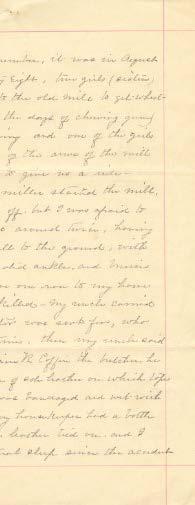 it was in August
Eight, two girls (sisters)
to the old mill to get wheat
the days of chewing gum
and one of the girls
of the arms of the mill
to give us a ride
miller started the mill,
off, but I was afraid to
around twice, having
to the ground, with
ankles, and bruises
one ran to my home
killed - My uncle carried
was sent for, who
then my uncle said
Coffin the butcher, he
of sole leather on which
was bandaged and wet with
my housekeeper had a bottle
leather tied on. and I
sleep since the accident